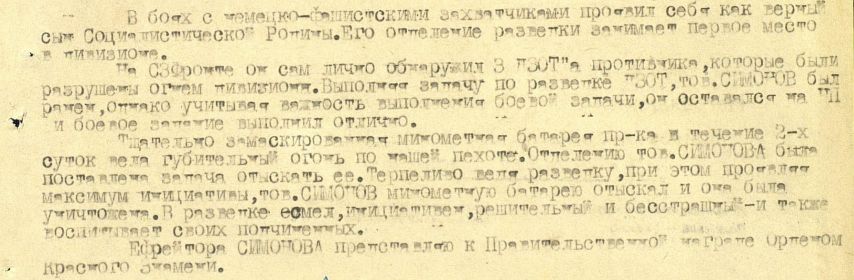 В боях с немецко-фашистскими захватчиками проявил себя как верный
сын Социалистической Родины.Его отделение разведки занимает первое место
в дивизионе.
На СЗФронте он сам лично обнаружил 3 ДЗОТ"а противника,которые были
разрушены огнем дивизиона.Выполняя задачу по разведке ДЗОТ,тов.СИМОНОВ был
ранен,однако учитывая важность выполнения боевой задачи,он оставался на НП
и боевое задание выполнил отлично.
Тщательно замаскированная минометная батарея пр-ка в течение 2-х
суток вела губительный огонь по нашей пехоте.Отделению тов.СИМОНОВА была
поставлена задача отыскать ее.Терпеливо ведя разведку,при этом проявляя
максимум инициативы,тов.СИМОНОВ минометную батарею отыскал и она была
уничтожена.В разведке смел,инициативен,решительный и бесстрашный-и также
воспитывает своих подчиненных.
Ефрейтора СИМОНОВА представляю к Правительственной награде Орденом
Красного Знамени.